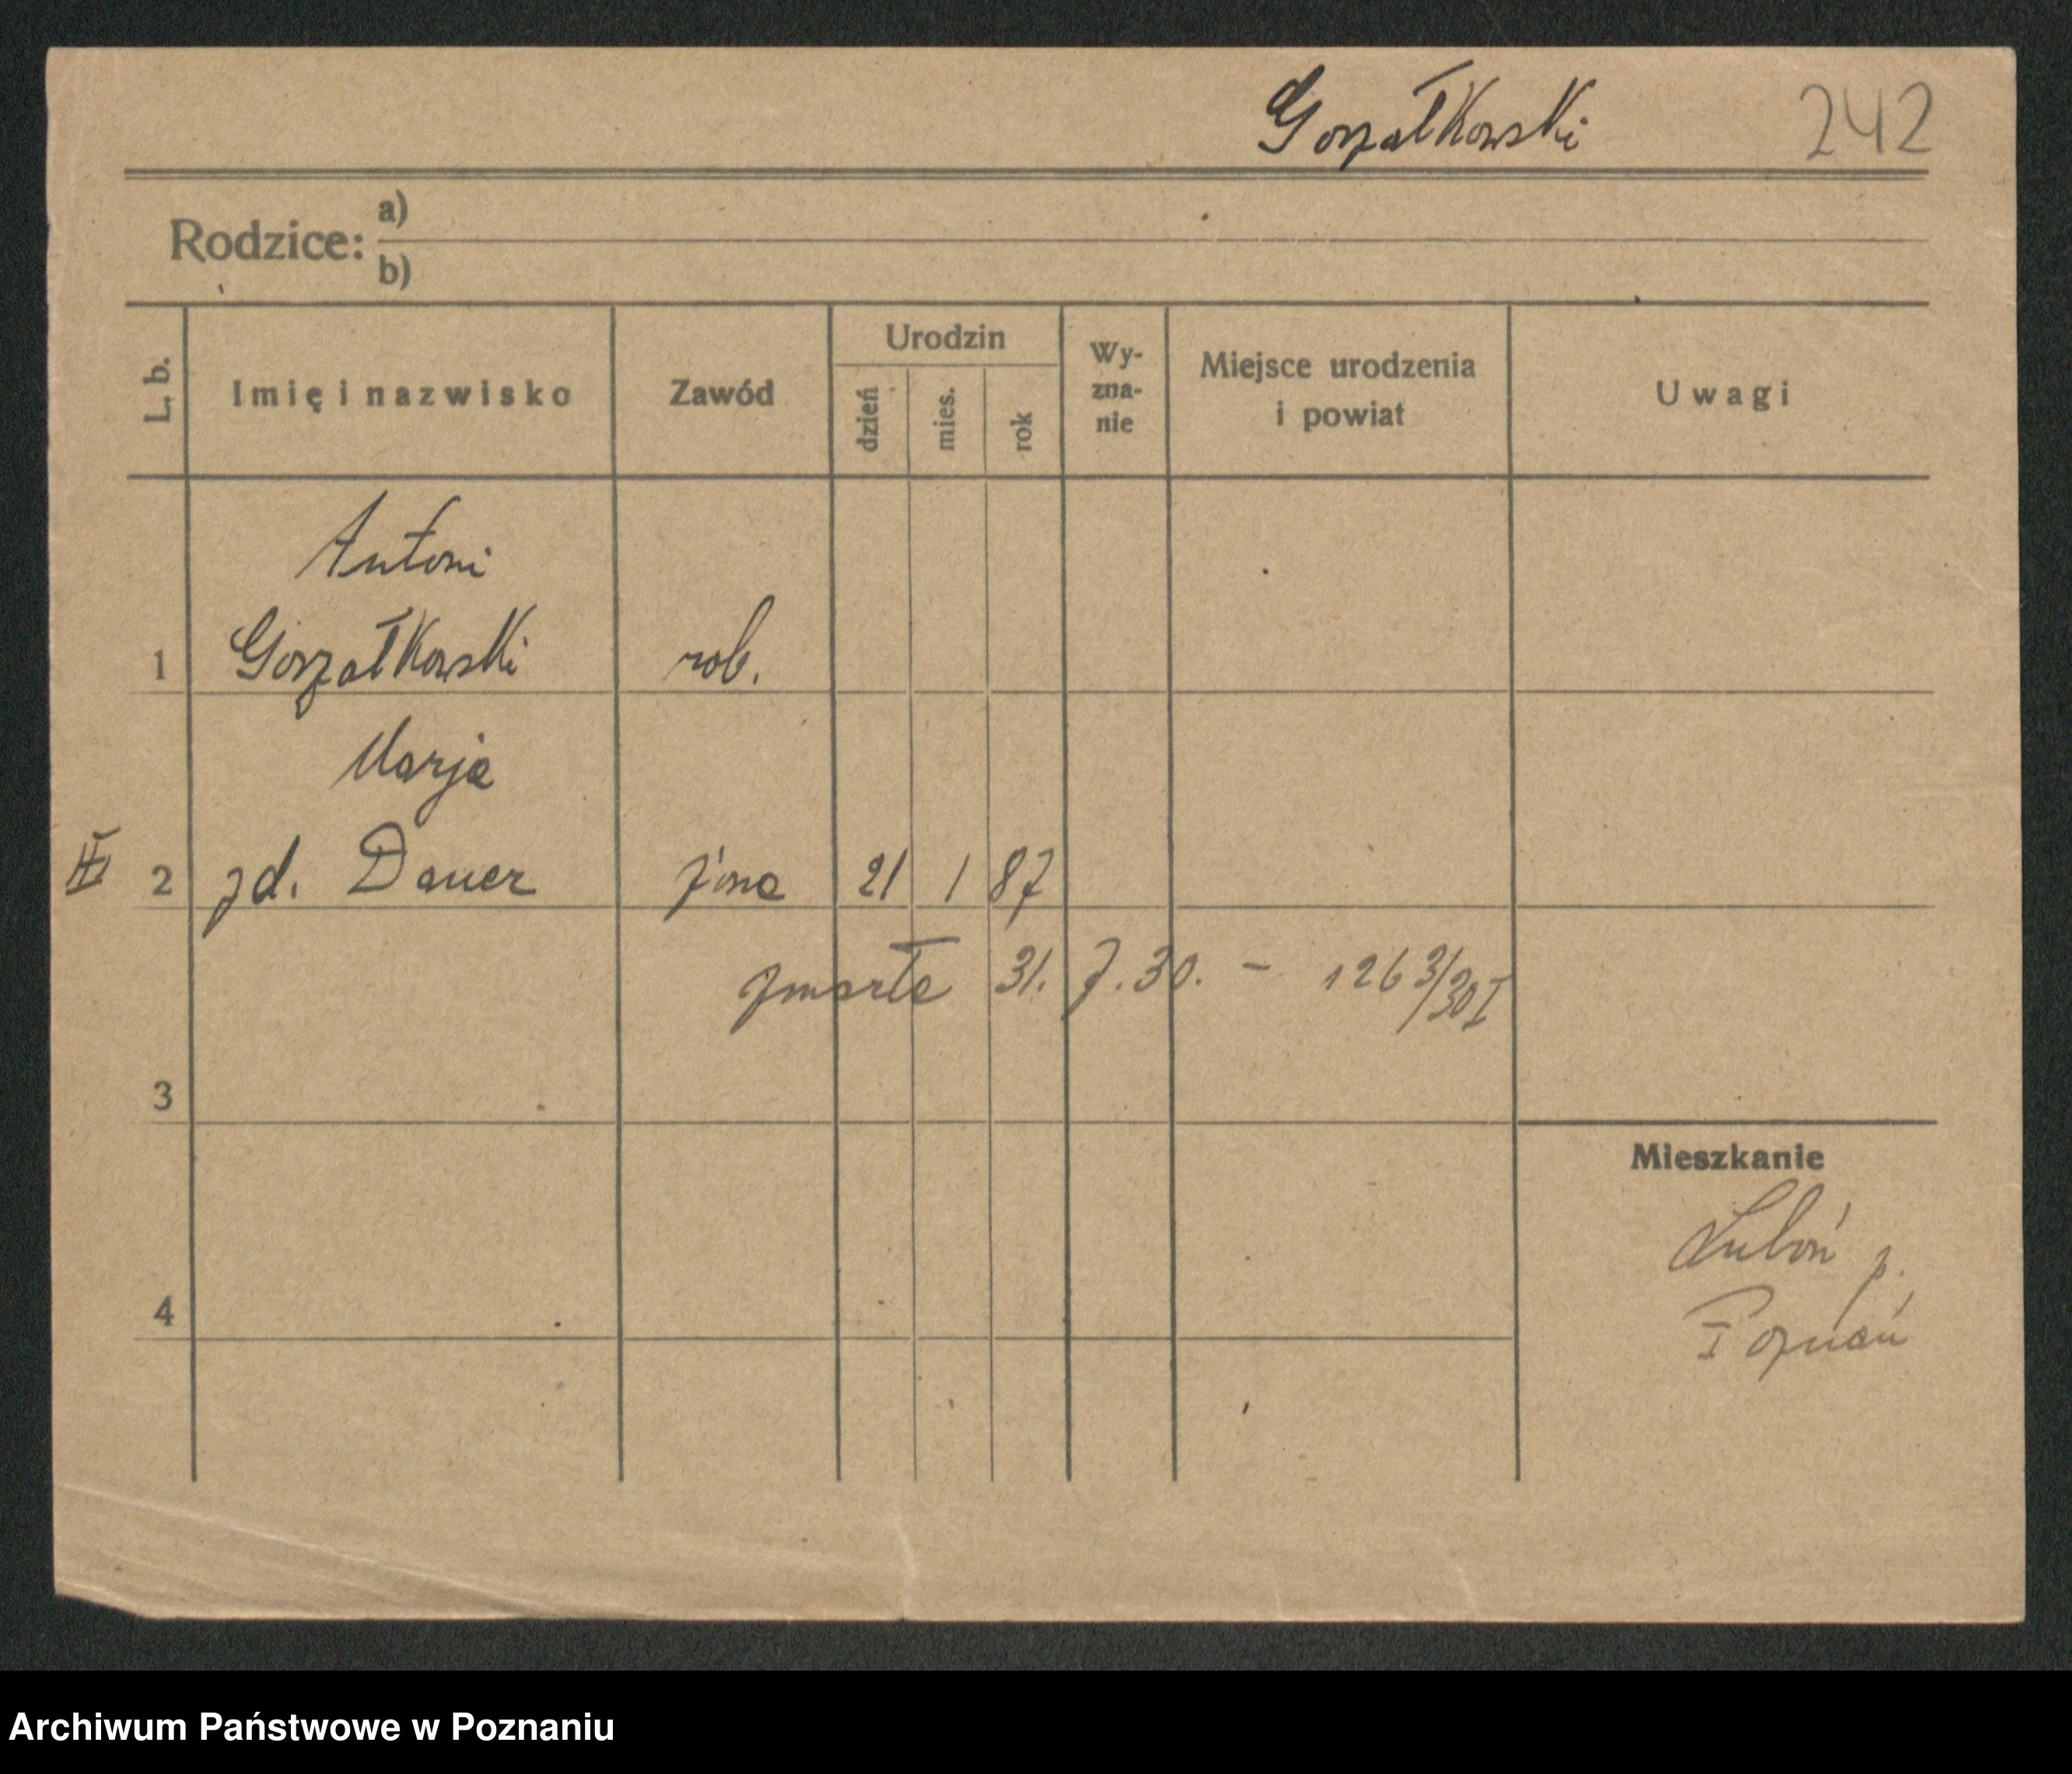 Gorzałkowski 242
Rodzice: a)
b)
L. b. Imię i nazwisko Zawód Urodzin dzień mies. rok Wy-zna-nie Miejsce urodzenia i powiat Uwagi
Antoni
1 Gorzałkowski rob.
Marja
2 zd. Dauer żona 21 1 87
zmarła 31. 7. 30. - 1263/30 I
3
Mieszkanie
Luboń p.
4
Poznań
Archiwum Państwowe w Poznaniu